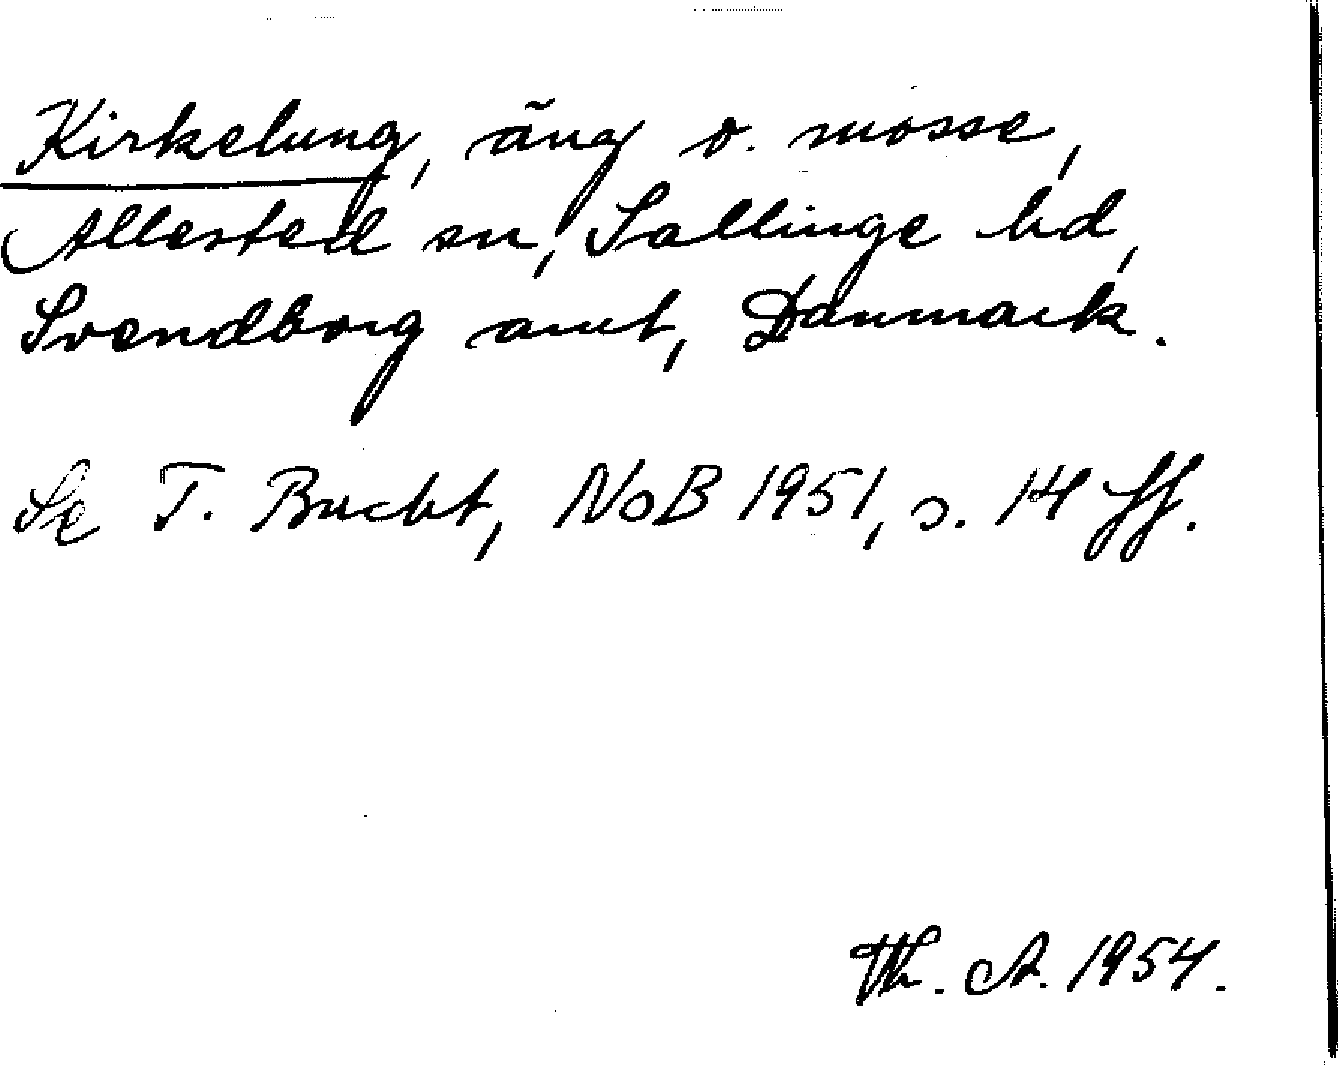 Kirkelung, äng o. mosse,
Allested sn, Sallinge hd,
Svendborg amt, Danmark.
Se T. Bucht, NoB 1951, s. 14 ff.
Th. A. 1954.